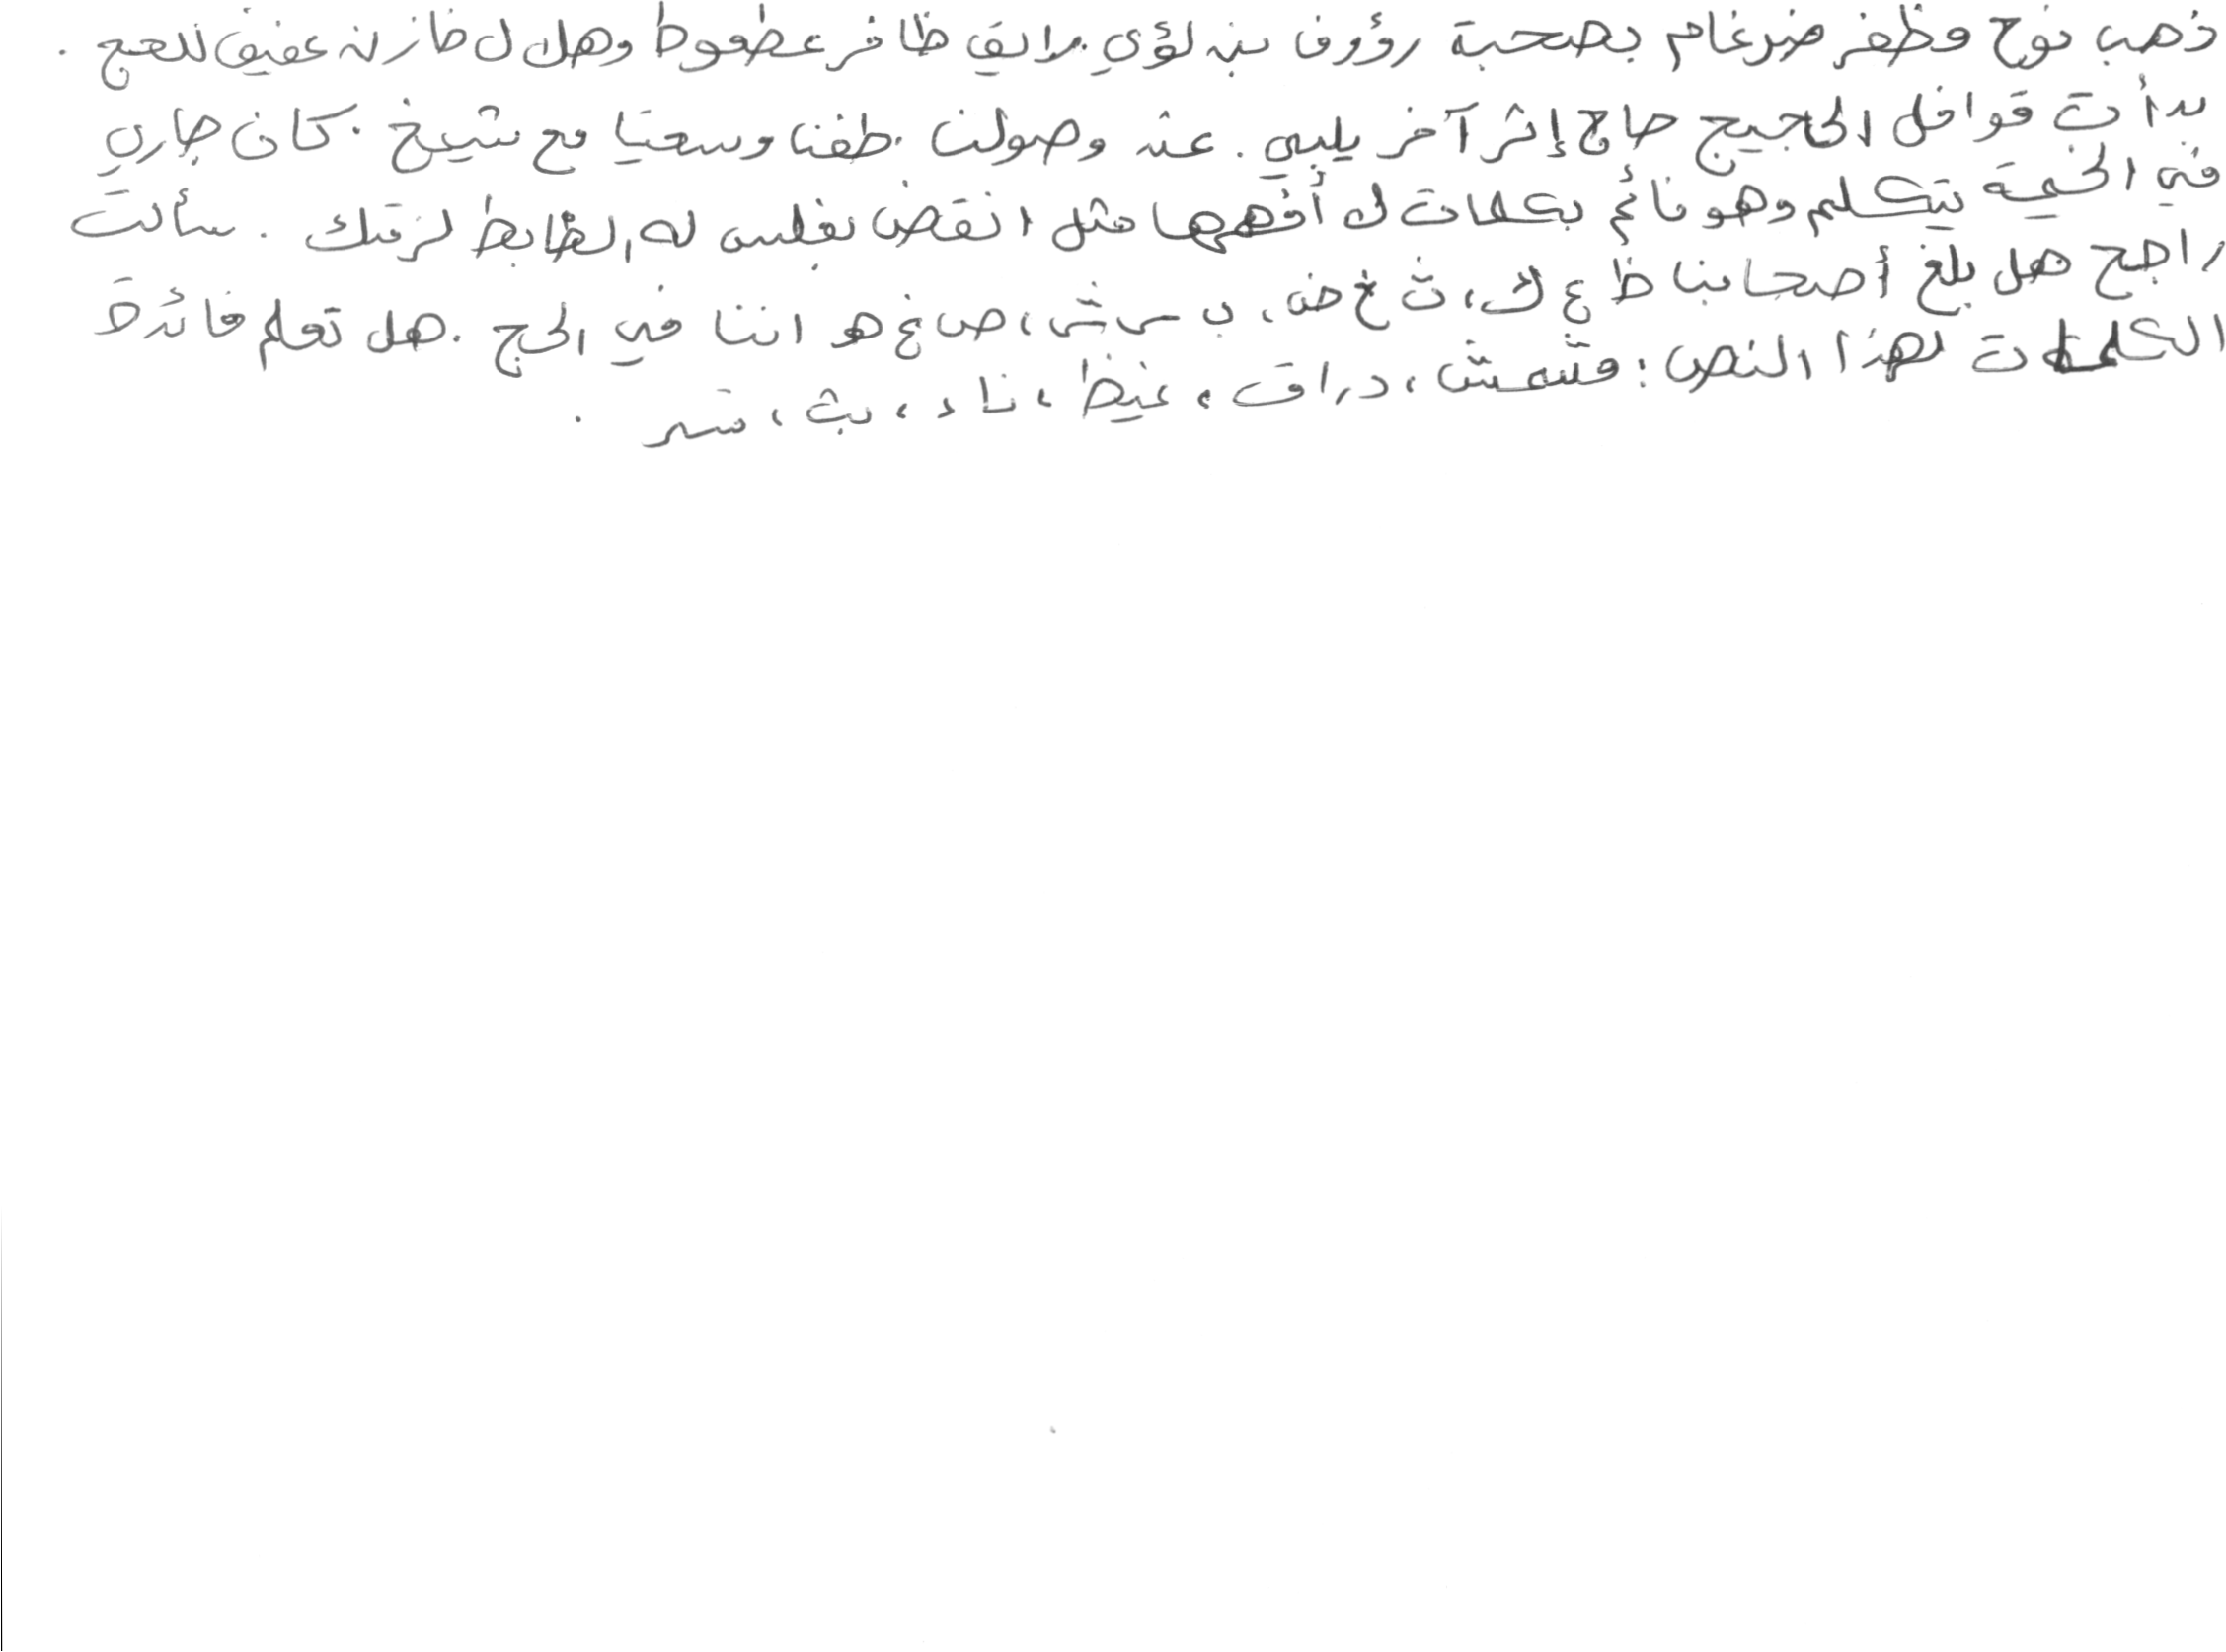 ذهب نوح وظفر ضرغام بصحبة رؤوف بن لؤي مرافق ظافر عطعوط وهلال خازن عفيف للحج .
بدأت قوافل الحجيج حاج إثر آخر يلبي . عند وصولنا طفنا وسعينا مع شيخ . كان جاري
في الخيمة يتكلم وهو نائم بكلمات لم أفهمها مثل انقض نفلس له
راجح هل بلغ أصحابنا ظ ع ك، ث غ ض، ب س ش، ص غ هو اننا في الحج . هل تعلم فائدة
الكلمات لهذا النص : مشمش، دراق، غيظ، ناء، بث،